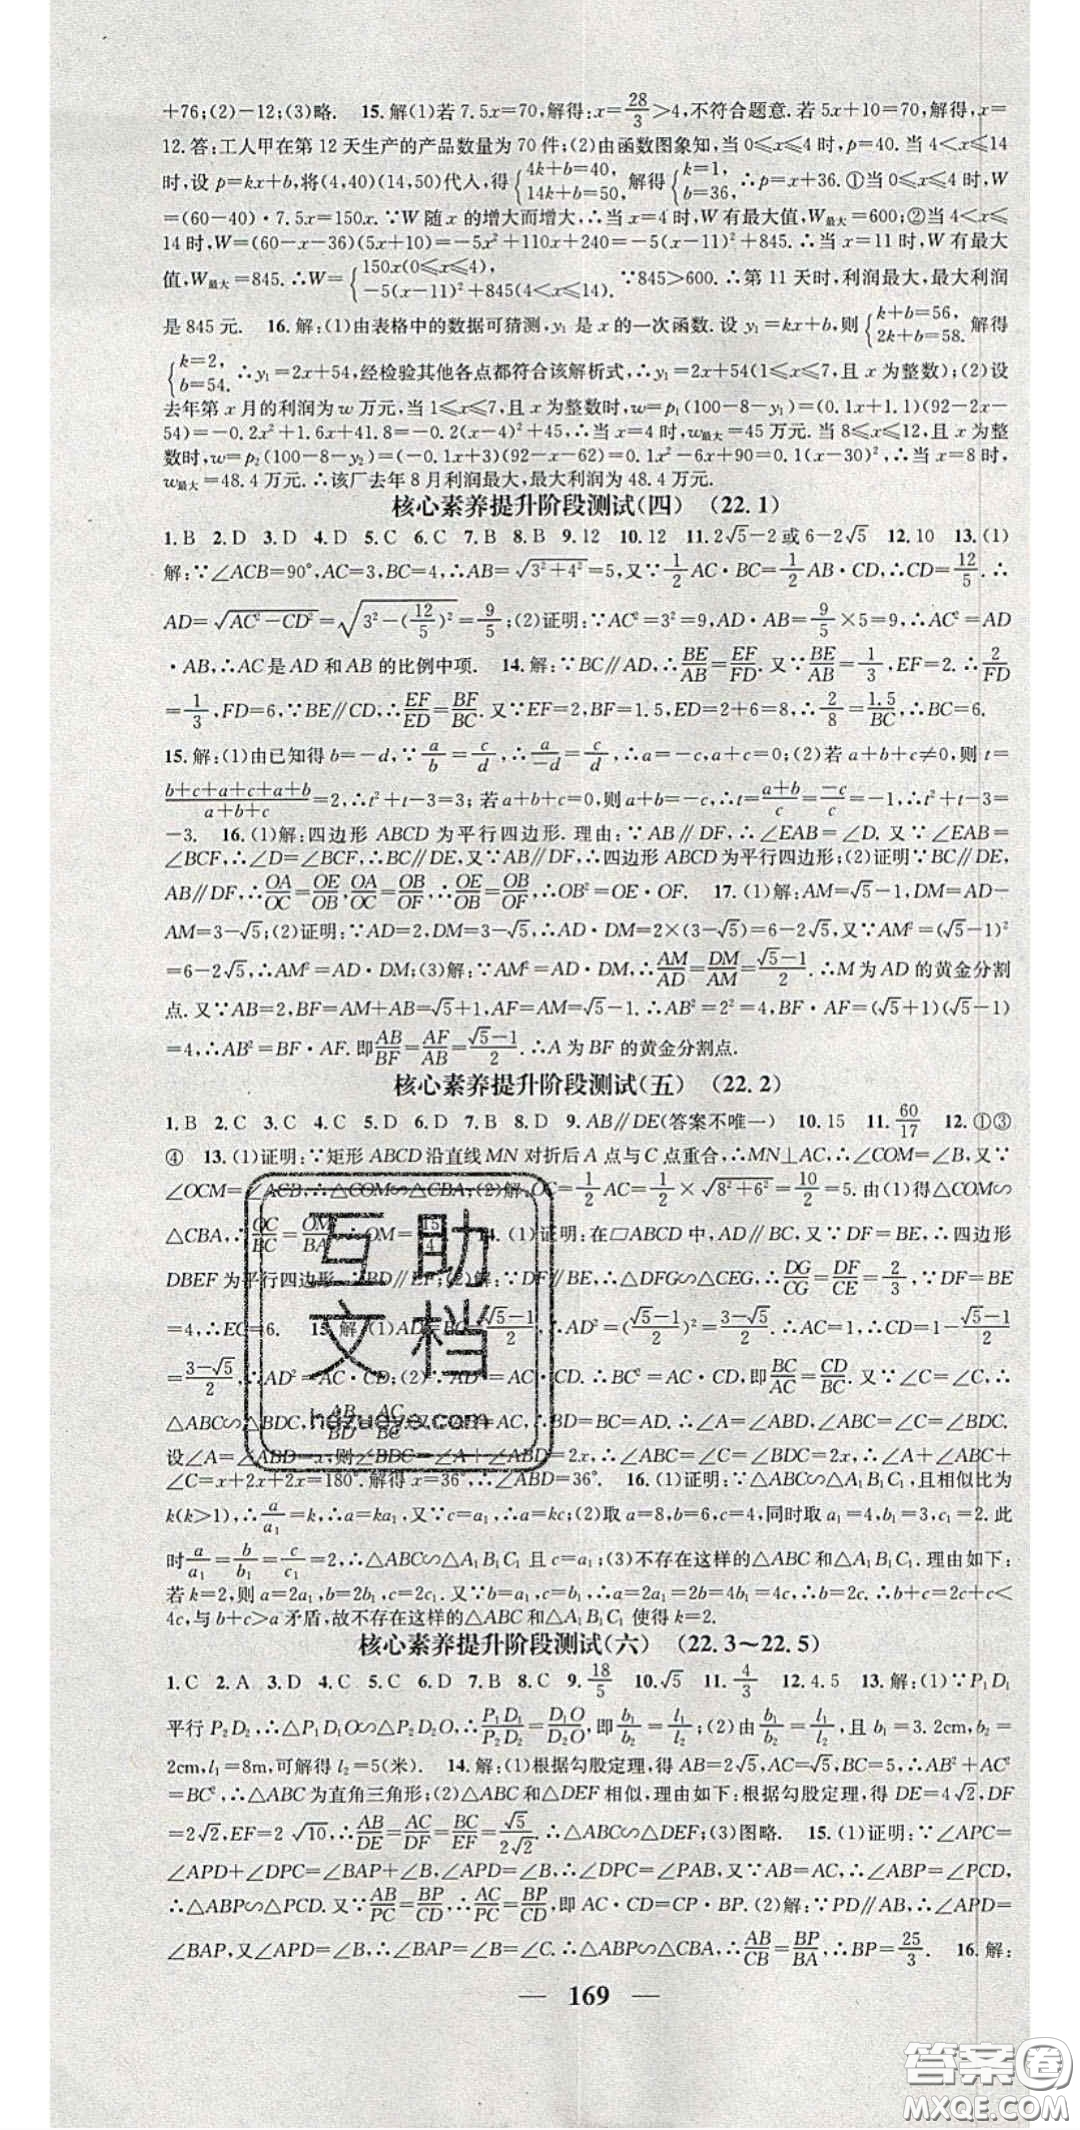 +76;(2)-12;(3)略. 15.解(1)若 7.5x=70,解得:x=28/3>4,不符合题意.若 5x+10=70,解得,x=
12.答:工人甲在第 12 天生产的产品数量为 70 件;(2)由函数图象知,当 0⩽x⩽4 时,p=40.当 4<x⩽14
时,设 p=kx+b,将(4,40)(14,50)代人,得{4k+b=40, 14k+b=50, 解得{k=1, b=36, ∴p=x+36.①当 0⩽x⩽4 时,W
=(60-40)·7.5x=150x.∵W 随 x 的增大而增大,∴当 x=4 时,W 有最大值,W最大=600;②当 4<x⩽
14 时,W=(60-x-36)(5x+10)=-5x²+110x+240=-5(x-11)²+845.∴当 x=11 时,W 有最大
值,W最大=845.∴W={150x(0⩽x⩽4), -5(x-11)²+845(4<x⩽14). ∵845>600.∴第 11 天时,利润最大,最大利润
是 845 元. 16.解:(1)由表格中的数据可猜测,y₁ 是 x 的一次函数.设 y₁=kx+b,则{k+b=56, 2k+b=58. 解得
{k=2, b=54. ∴y₁=2x+54,经检验其他各点都符合该解析式,∴y₁=2x+54(1⩽x⩽7,且 x 为整数);(2)设
去年第 x 月的利润为 w 万元,当 1⩽x⩽7,且 x 为整数时,w=p₁(100-8-y₁)=(0.1x+1)(92-2x-
54)=-0.2x²+1.6x+41.8=-0.2(x-4)²+45,∴当 x=4 时,w最大=45 万元.当 8⩽x⩽12,且 x 为整
数时,w=p₂(100-8-y₂)=(-0.1x+3)(92-x-62)=0.1x²-6x+90=0.1(x-30)².∴当 x=8 时,
w最大=48.4 万元.∴该厂去年 8 月利润最大,最大利润为 48.4 万元.
核心素养提升阶段测试(四) (22.1)
1.B 2.D 3.D 4.D 5.C 6.C 7.B 8.B 9.12 10.12 11.2√5-2 或 6-2√5 12.10 13.(1)
解:∵∠ACB=90°,AC=3,BC=4,∴AB=√(3²+4²)=5,又∵1/2AC·BC=1/2AB·CD,∴CD=12/5.∴
AD=√(AC²-CD²)=√(3²-(12/5)²)=9/5;(2)证明:∵AC²=3²=9,AD·AB=9/5×5=9,∴AC²=AD
·AB,∴AC 是 AD 和 AB 的比例中项. 14.解:∵BC∥AD,∴BE/AB=EF/FD.又∵BE/AB=1/3,EF=2.∴2/FD
=1/3,FD=6,∵BE∥CD,∴EF/ED=BF/BC.又∵EF=2,BF=1.5,ED=2+6=8,∴2/8=1.5/BC,∴BC=6.
15.解:(1)由已知得 b=-d,∵a/b=c/d,∴a/-d=c/d,∴a=-c,a+c=0;(2)若 a+b+c≠0,则 t=
(b+c+a+c+a+b)/(a+b+c)=2,∴t²+t-3=3;若 a+b+c=0,则a+b=-c,∴t=(a+b)/c=-c/c=-1,∴t²+t-3=
-3. 16.(1)解:四边形 ABCD 为平行四边形.理由:∵AB∥DF,∴∠EAB=∠D.又∵∠EAB=
∠BCF,∴∠D=∠BCF,∴BC∥DE,又∵AB∥DF,∴四边形 ABCD 为平行四边形;(2)证明∵BC∥DE,
AB∥DF,∴OA/OC=OE/OB,OA/OC=OB/OF,∴OE/OB=OB/OF,∴OB²=OE·OF. 17.(1)解:AM=√5-1,DM=AD-
AM=3-√5;(2)证明:∵AD=2,DM=3-√5,∴AD·DM=2×(3-√5)=6-2√5,又∵AM²=(√5-1)²
=6-2√5,∴AM²=AD·DM;(3)解:∵AM²=AD·DM,∴AM/AD=DM/AM=(√5-1)/2.∴M 为 AD 的黄金分割
点.又∵AB=2,BF=AM+AB=√5+1,AF=AM=√5-1.∴AB²=2²=4,BF·AF=(√5+1)(√5-1)
=4,∴AB²=BF·AF.即AB/BF=AF/AB=(√5-1)/2.∴A 为 BF 的黄金分割点.
核心素养提升阶段测试(五) (22.2)
1.B 2.C 3.C 4.C 5.D 6.D 7.B 8.D 9.AB∥DE(答案不唯一) 10.15 11.60/17 12.①③
④ 13.(1)证明:∵矩形 ABCD 沿直线 MN 对折后 A 点与 C 点重合,∴MN⊥AC,∴∠COM=∠B,又∵
∠OCM=∠ACB,∴△COM∽△CBA;(2)解:OC=1/2AC=1/2×√(8²+6²)=10/2=5.由(1)得△COM∽
△CBA,∴OC/BC=OM/BA,∴OM=15/4. 14.(1)证明:在▱ABCD 中,AD∥BC,又∵DF=BE,∴四边形
DBEF 为平行四边形,∴BD∥EF;(2)解:∵DF∥BE,∴△DFG∽△CEG,∴DG/CG=DF/CE=2/3,∵DF=BE
=4,∴EC=6. 15.解:(1)AD=BC=(√5-1)/2,∴AD²=((√5-1)/2)²=(3-√5)/2.∵AC=1,∴CD=1-(√5-1)/2
=(3-√5)/2,∴AD²=AC·CD;(2)∵AD²=AC·CD.∴BC²=AC·CD,即BC/AC=CD/BC.又∵∠C=∠C,∴
△ABC∽△BDC,∴AB/BD=AC/BC.又∵AB=AC,∴BD=BC=AD.∴∠A=∠ABD,∠ABC=∠C=∠BDC.
设∠A=∠ABD=x,则∠BDC=∠A+∠ABD=2x,∴∠ABC=∠C=∠BDC=2x,∴∠A+∠ABC+
∠C=x+2x+2x=180°.解得 x=36°,∴∠ABD=36°. 16.(1)证明:∵△ABC∽△A₁B₁C₁,且相似比为
k(k>1),∴a/a₁=k,∴a=ka₁,又∵c=a₁,∴a=kc;(2)取 a=8,b=6,c=4,同时取 a₁=4,b₁=3,c₁=2.此
时a/a₁=b/b₁=c/c₁=2,∴△ABC∽△A₁B₁C₁ 且 c=a₁;(3)不存在这样的△ABC 和△A₁B₁C₁.理由如下:
若 k=2,则 a=2a₁,b=2b₁,c=2c₁.又∵b=a₁,c=b₁,∴a=2a₁=2b=4b₁=4c,∴b=2c.∴b+c=2c+c<
4c,与 b+c>a 矛盾,故不存在这样的△ABC 和△A₁B₁C₁ 使得 k=2.
核心素养提升阶段测试(六) (22.3~22.5)
1.C 2.A 3.D 4.C 5.C 6.D 7.B 8.C 9.18/5 10.√5 11.4/3 12.4.5 13.解:(1)∵P₁D₁
平行 P₂D₂,∴△P₁D₁O∽△P₂D₂O,∴P₁D₁/P₂D₂=D₁O/D₂O,即b₁/b₂=l₁/l₂;(2)由b₁/b₂=l₁/l₂,且 b₁=3.2cm,b₂=
2cm,l₁=8m,可解得 l₂=5(米). 14.解:(1)根据勾股定理,得 AB=2√5,AC=√5,BC=5,∴AB²+AC²
=BC²,∴△ABC 为直角三角形;(2)△ABC 和△DEF 相似,理由如下:根据勾股定理,得 DE=4√2,DF
=2√2,EF=2√10,∴AB/DE=AC/DF=BC/EF=√5/2√2.∴△ABC∽△DEF;(3)图略. 15.(1)证明:∵∠APC=
∠APD+∠DPC=∠BAP+∠B,∠APD=∠B,∴∠DPC=∠PAB,又∵AB=AC,∴∠ABP=∠PCD,
∴△ABP∽△PCD.又∵AB/PC=BP/CD,∴AC/PC=BP/CD,即 AC·CD=CP·BP.(2)解:∵PD∥AB,∴∠APD=
∠BAP,又∠APD=∠B,∴∠BAP=∠B=∠C.∴△ABP∽△CBA,∴AB/CB=BP/BA,∴BP=25/3. 16.解:
— 169 —
互助
文档
hdzuoye.com
答案圈
MXQE.COM